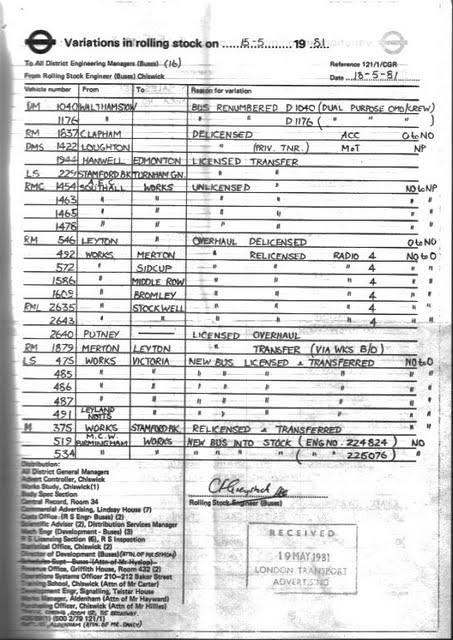 Variations in rolling stock on ....15-5....... 19 81.
To All District Engineering Managers (Buses) (16)
Reference 121/1/CGR
From Rolling Stock Engineer (Buses) Chiswick
Date 18-5-81
Vehicle number From To Reason for variation
DM 1040 WALTHAMSTOW BUS RENUMBERED D1040 (DUAL PURPOSE OMO/CREW)
1176 " " " D1176 ( " " " )
RM 1837 CLAPHAM DELICENSED ACC O to NO
DMS 1422 LOUGHTON " (PRIV. TNR.) MoT NP
1944 HANWELL EDMONTON LICENSED TRANSFER
LS 229 STAMFORD BK TURNHAM GN. " "
RMC 1454 A.E.C. SOUTHALL WORKS UNLICENSED " NO to NP
1463 " " " " "
1465 " " " " "
1476 " " " " "
RM 546 LEYTON " OVERHAUL DELICENSED O to NO
492 WORKS MERTON " RELICENSED RADIO 4 NO to O
572 " SIDCUP " " " 4 "
1586 " MIDDLE ROW " " " 4 "
1609 " BROMLEY " " " 4 "
RML 2635 " STOCKWELL " " " 4 "
2643 " " " " " 4 "
2640 PUTNEY LICENSED OVERHAUL
RM 1879 MERTON LEYTON " TRANSFER (VIA WKS B/O)
LS 475 WORKS VICTORIA NEW BUS LICENSED & TRANSFERRED NO to O
485 " " " " " " "
486 " " " " " " "
487 " " " " " " "
491 LEYLAND NOTTS " " " " " "
M 375 WORKS STAMFORD BK. RELICENSED & TRANSFERRED "
519 M.C.W. BIRMINGHAM WORKS NEW BUS INTO STOCK (ENG NO. 224824) NO
534 " " " " " " ( " " 225076) "
Distribution:
All District General Managers
Advert Controller, Chiswick
Works Study, Chiswick (1)
Body Spec Section
Central Record, Room 34
Commercial Advertising, Lindsay House (7)
Costs Office (R S Engr- Buses) (2)
Scientific Adviser (2), Distribution Services Manager
Mech Engr (Development - Buses) (3)
R S Licensing Section (6), R S Inspection
Statistical Office, Chiswick (2)
Director of Development (Buses)
Schedules Supt - Buses (Attn of Mr Hyslop)
Revenue Office, Griffith House, Room 432 (2)
Operations Systems Officer 210-212 Baker Street
Training School, Chiswick (Attn of Mr Carter)
Development Engr, Signalling, Telstar House
Works Manager, Aldenham (Attn of Mr Hayward)
Purchasing Officer, Chiswick (Attn of Mr Hillies)
Rolling Stock Engineer (Buses)
RECEIVED
19 MAY 1981
LONDON TRANSPORT
ADVERTISING